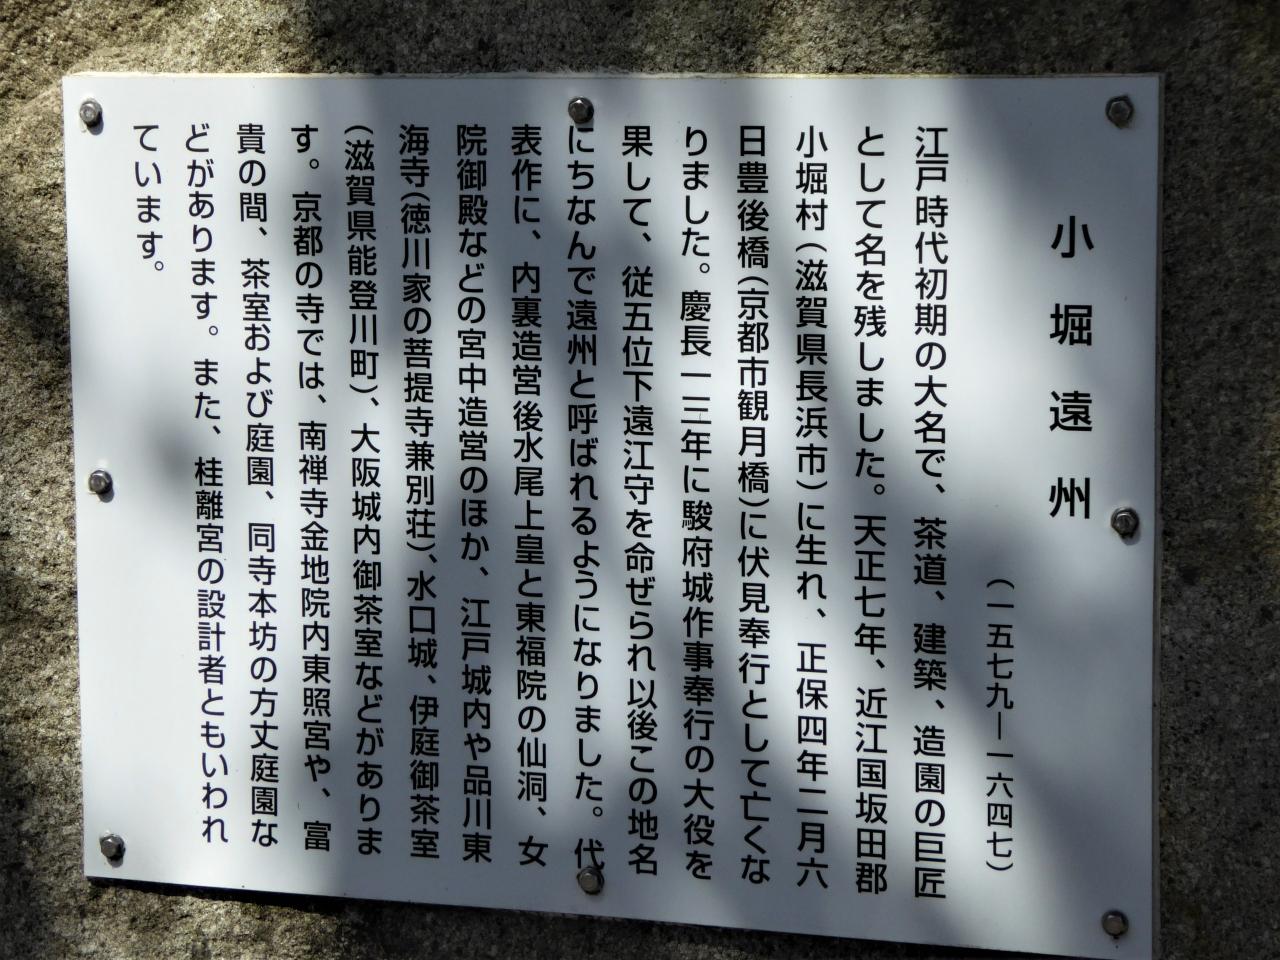 小堀遠州
（一五七九―一六四七）
江戸時代初期の大名で、茶道、建築、造園の巨匠
として名を残しました。天正七年、近江国坂田郡
小堀村（滋賀県長浜市）に生れ、正保四年二月六
日豊後橋（京都市観月橋）に伏見奉行として亡くな
りました。慶長一三年に駿府城作事奉行の大役を
果して、従五位下遠江守を命ぜられ以後この地名
にちなんで遠州と呼ばれるようになりました。代
表作に、内裏造営後水尾上皇と東福院の仙洞、女
院御殿などの宮中造営のほか、江戸城内や品川東
海寺（徳川家の菩提寺兼別荘）、水口城、伊庭御茶室
（滋賀県能登川町）、大阪城内御茶室などがありま
す。京都の寺では、南禅寺金地院内東照宮や、富
貴の間、茶室および庭園、同寺本坊の方丈庭園な
どがあります。また、桂離宮の設計者ともいわれ
ています。